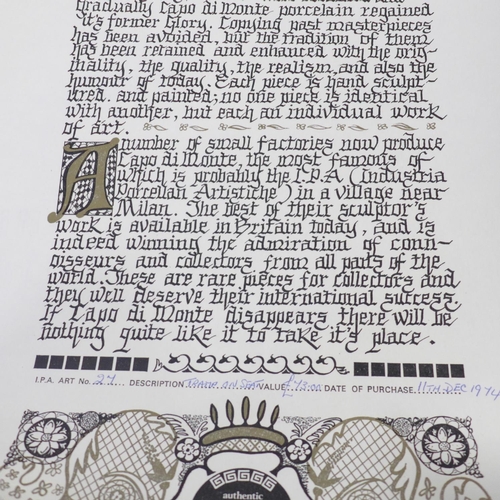 gradually Capo di Monte porcelain regained
it's former Glory. Copying past masterpieces
has been avoided, but the tradition of them
has been retained and enhanced with the orig-
inality, the quality, the realism, and also the
humour of today. Each piece is hand sculpt-
ured, and painted; no one piece is identical
with another, but each an individual work
of art.
A number of small factories now produce
Capo di Monte, the most famous of
which is probably the I.P.A (Industria
Porcellan Artistiche) in a village near
Milan. The best of their sculptor's
work is available in Britain today, and is
indeed winning the admiration of conn-
oisseurs and collectors from all parts of the
world. These are rare pieces for collectors and
they well deserve their international success.
If Capo di Monte disappears there will be
nothing quite like it to take it's place.
I.P.A. ART No. 27 DESCRIPTION TRAMP ON SEAT VALUE: £73.00 DATE OF PURCHASE 11TH DEC 1974
authentic